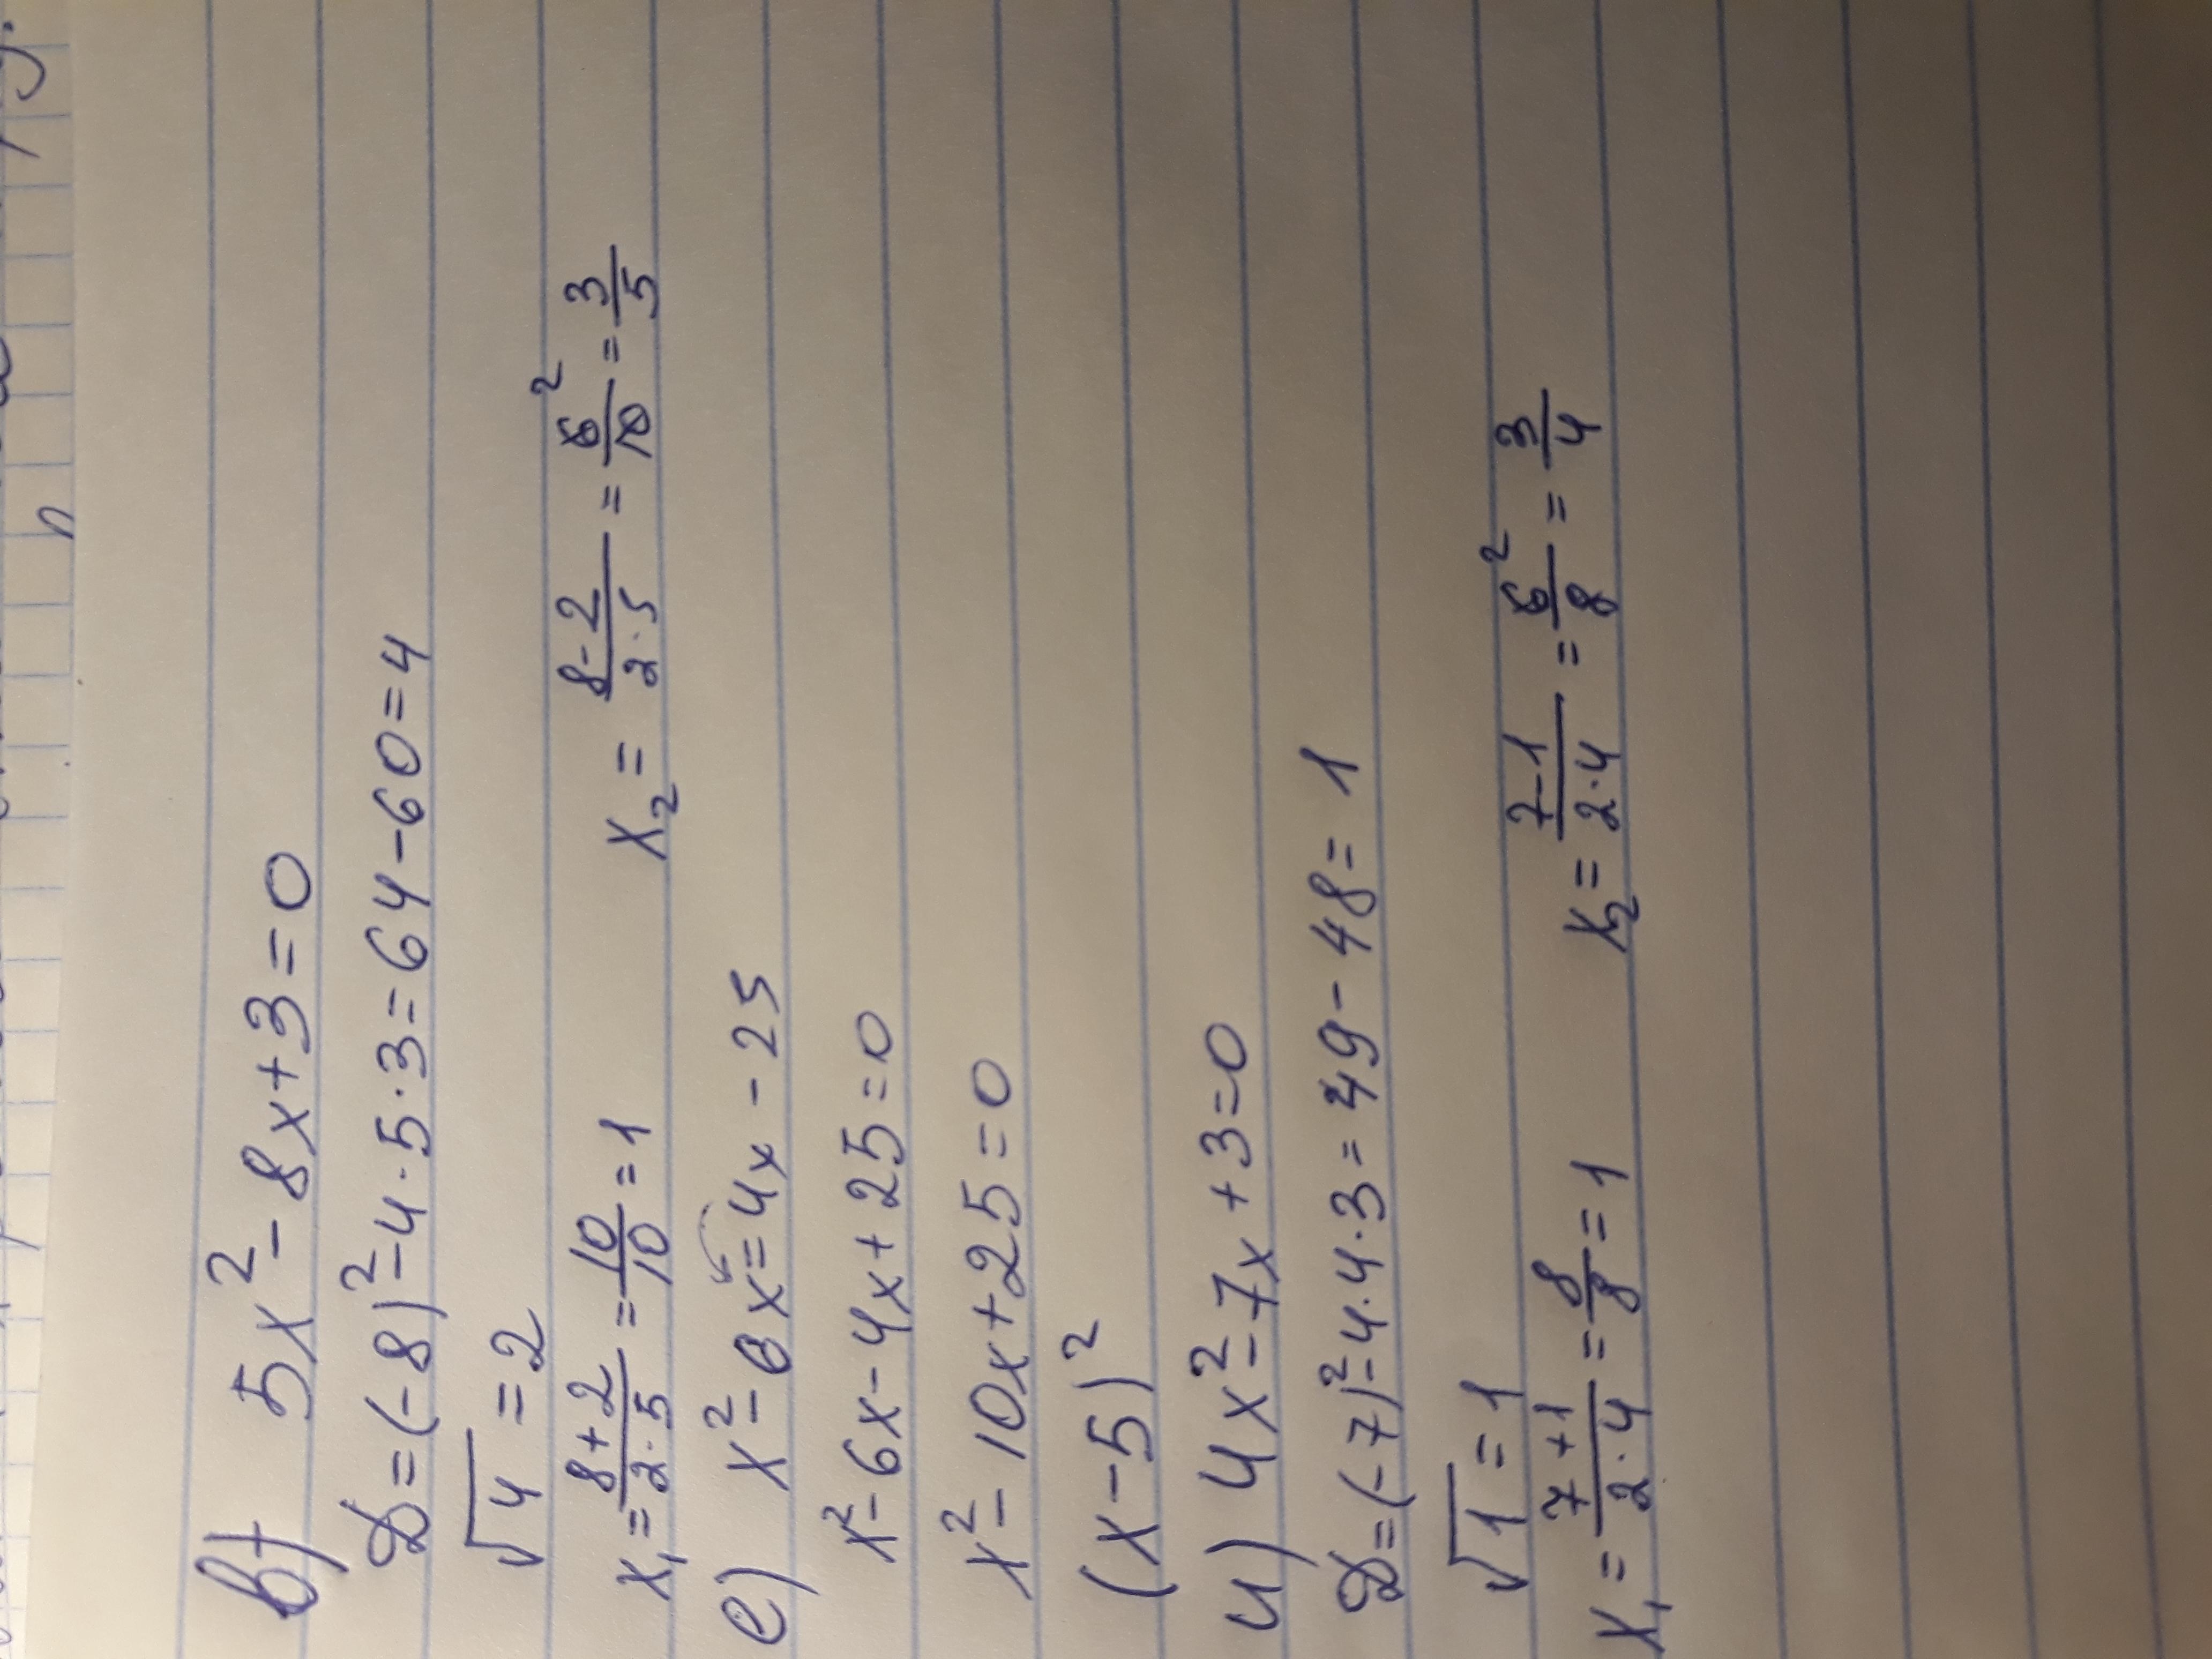 в) 5x² - 8x + 3 = 0
D = (-8)² - 4 · 5 · 3 = 64 - 60 = 4
√4 = 2
x₁ = (8 + 2)/(2 · 5) = 10/10 = 1    x₂ = (8 - 2)/(2 · 5) = 6/10 ² = 3/5
е) x² - 6x = 4x - 25
x² - 6x - 4x + 25 = 0
x² - 10x + 25 = 0
(x - 5)²
и) 4x² - 7x + 3 = 0
D = (-7)² - 4 · 4 · 3 = 49 - 48 = 1
√1 = 1
x₁ = (7 + 1)/(2 · 4) = 8/8 = 1    x₂ = (7 - 1)/(2 · 4) = 6/8 ² = 3/4